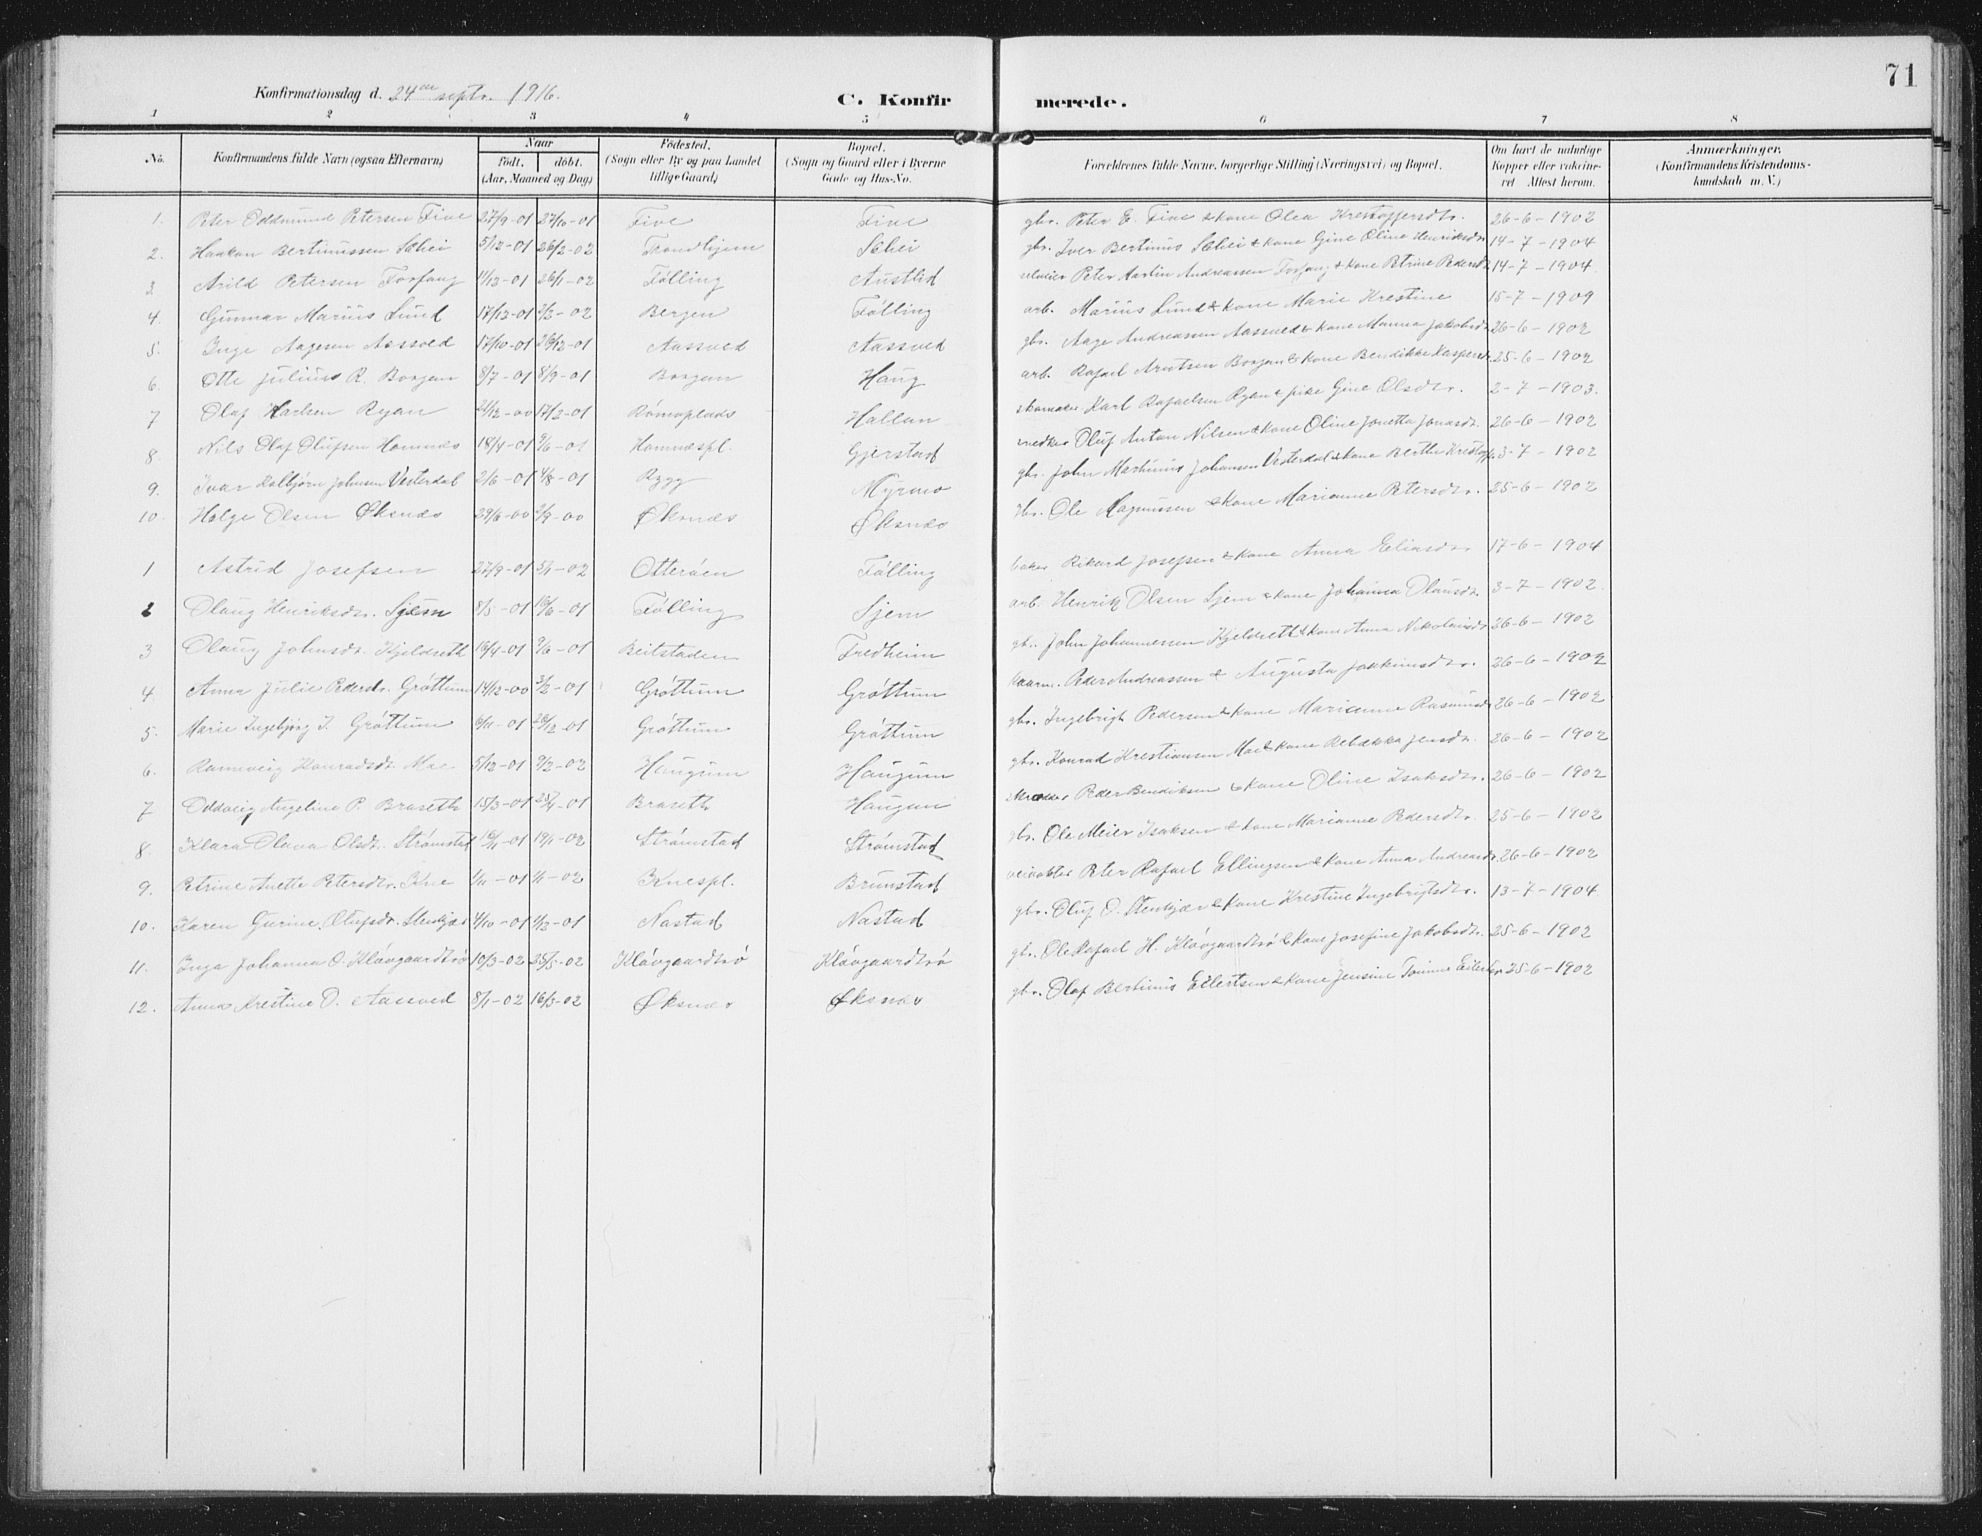 71
Konfirmationsdag d. 24de septr. 1916.
C. Konfirmerede.
1 2 3 4 5 6 7 8
No. Konfirmandens fulde Navn (ogsaa Efternavn) Naar født. døbt. (Aar, Maaned og Dag) Fødested. (Sogn eller By og paa Landet tillige Gaard) Bopæl. (Sogn og Gaard eller i Byerne Gade og Hus-No. Forældrenes fulde Navne, borgerlige Stilling (Næringsvei) og Bopæl. Om havt de naturlige Kopper eller vaccineret Attest herom. Anmærkninger. (Konfirmandens Kristendomskundskab m. V.)
1. Peter Oddmund Petersen Five 27/9-01 27/10-01 Five Five gbr. Peter E. Five & kone Olea Krestoffersdtr. 26-6-1902
2. Haakon Bertinussen Sæhei 5/12-01 26/2-02 Trondhjem Sæhei gbr. Iver Bertinus Sæhei & kone Gine Oline Henriksdtr 14-7-1904
3 Arild Petersen Torfang 11/12-01 26/1-02 Følling Austlid Peter Martin Andreassen Torfang & kone Petrine Pedersdtr 14-7-1904.
4. Gunnar Marius Lund 17/12-01 2/2-02 Bergen Følling arb. Marius Lund & kone Marie Krestine 15-7-1909
5. Inge Aagesen Aassved 17/10-01 26/12-01 Aassved Aassved gbr. Aage Andreassen Aassved & kone Manna Jakobsdtr 26-6-1902
6. Otte Julius R. Borgan 8/7-01 8/9-01 Borgan Haug arb. Rafael Arntsen Borgan & kone Bendikke Kaspersdtr 25-6-1902
7 Olaf Karlsen Ryan 21/12-00 17/2-01 Rømoplads Hallan skomaker Karl Rafaelsen Ryan & pike Gine Olsdtr. 2-7-1903.
8 Nils Olaf Olufsen Homnæs 18/4-01 9/6-01 Homnæspl. Gjerstad snedker Oluf Anton Nilsen & kone Oline Jonetta Jonasdtr. 26-6-1902
9. Ivar Kolbjørn Johnsen Vesterdal 2/6-01 4/8-01 Rygg Myrmo gbr. John Martinus Johansen Vesterdal & kone Berthe Krestoff. 3-7-1902
10. Helge Olsen Øksnæs 29/6-00 2/9-00 Øksnæs Øksnæs gbr. Ole Magnussen & kone Marianne Petersdtr. 25-6-1902
1 Astrid Josefsen 27/9-01 5/1-02 Otterøen Følling baker Rikard Josefsen & kone Anna Eliasdtr 17-6-1904
2 Olaug Henriksdtr. Sjem 8/5-01 16/6-01 Følling Sjem arb. Henrik Olsen Sjem & kone Johanna Olausdtr 3-7-1902.
3 Olaug Johnsdtr. Kjeldseth 16/4-01 9/6-01 Beitstaden Fredheim gbr. John Johannessen Kjeldseth & kone Anna Nikolaisdtr 26-6-1902
4 Anna Julie Pedersdtr. Grøttum 14/12-00 3/2-01 Grøttum Grøttum Peder Andreassen & Augusta Joakimsdtr. 26-6-1902
5. Marie Ingebjørg I. Grøttum 6/11-01 26/12-01 Grøttum Grøttum gbr. Ingebrigt Pedersen & kone Marianne Rasmusdtr 26-6-1902
6. Ranveig Konradsdtr. Moe 5/12-01 9/2-02 Haugum Haugum gbr. Konrad Krestiansen Moe & kone Rebækka Jensdtr. 26-6-1902
7 Oddveig Angeline P. Braseth 15/3-01 25/4-01 Braseth Haugan skrædder Peder Bendiksen & kone Oline Isaksdtr. 26-6-1902
8. Klara Olava Olsdtr. Strømstad 16/11-01 19/1-02 Strømstad Strømstad gbr. Ole Meier Isaksen & kone Marianne Pedersdtr. 25-6-1902
9. Petrine Anette Petersdtr. Kne 1/11-01 1/1-02 Knespl. Brunstad veivokter Peter Rafael Ellingsen & kone Anna Andreasdtr 26-6-1902
10. Karen Gurine Olufsdtr. Stenkjær 4/10-01 1/12-01 Nastad Nastad gbr. Oluf O. Stenkjær & kone Krestine Ingebrigtsdtr. 13-7-1904
11. Inga Johanna O. Kløvgaardtrø 10/3-02 25/5-02 Kløvgaardtrø Kløvgaardtrø gbr. Ole Rafael H. Kløvgaardtrø & kone Josefine Jakobsdtr. 25-6-1902
12. Anna Krestine O. Aassved 8/1-02 16/3-02 Øksnæs Øksnæs gbr. Olaf Bertinus Eilertsen & kone Jensine 25-6-1902